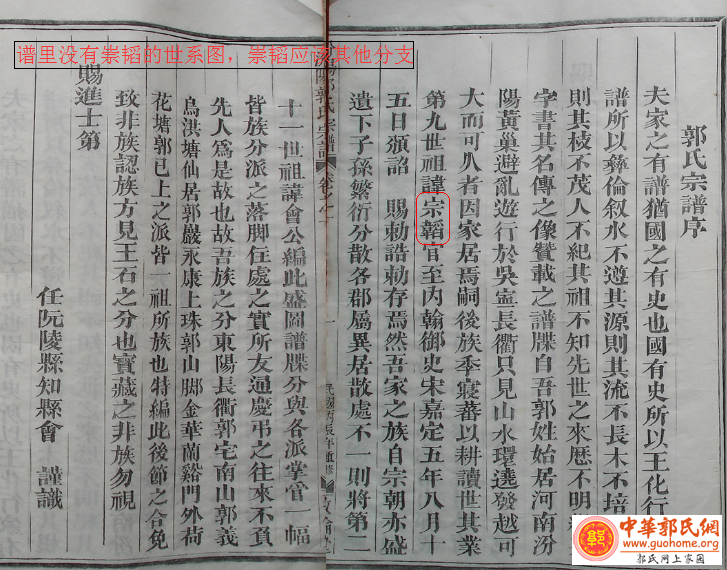 谱里没有崇韬的世系图，崇韬应该其他分支
郭氏宗譜序
夫家之有譜猶國之有史也國有史所以王化行
譜所以彝倫叙水不遵其源則其流不長木不培
則其枝不茂人不紀其祖不知先世之來歷不明
字書其名傳之像贊載之譜牒自吾郭姓始居河南汾
陽黃巢避亂遊行於吳寧長衢只見山水環遶發越可
大而可久者因家居焉嗣後族季寢蕃以耕讀世其業
第九世祖諱宗韜官至內翰御史宋嘉定五年八月十
五日頒詔 賜勅誥勅存焉然吾家之族自宗朝亦盛
遺下子孫繁衍分散各郡屬異居散處不一則將第二
郭氏宗譜
卷之
一
民國丙辰年重修
十一世祖諱會公編此盛圖譜牒分與各派掌官一幅
皆族分派之落脚住處之實所友通慶弔之往來不負
先人爲是故也故吾族之分東陽長衢郭宅南山郭義
烏淇塘仙居郭巖永康上珠郭山脚金華蘭谿門外荷
花塘郭已上之派皆一祖所族也特編此後節之合免
致非族認族方見王石之分也寶藏之非族勿視
賜進士第
任阮陵縣知縣會 謹識
中華郭氏網
www.guohome.org
郭氏网上家园